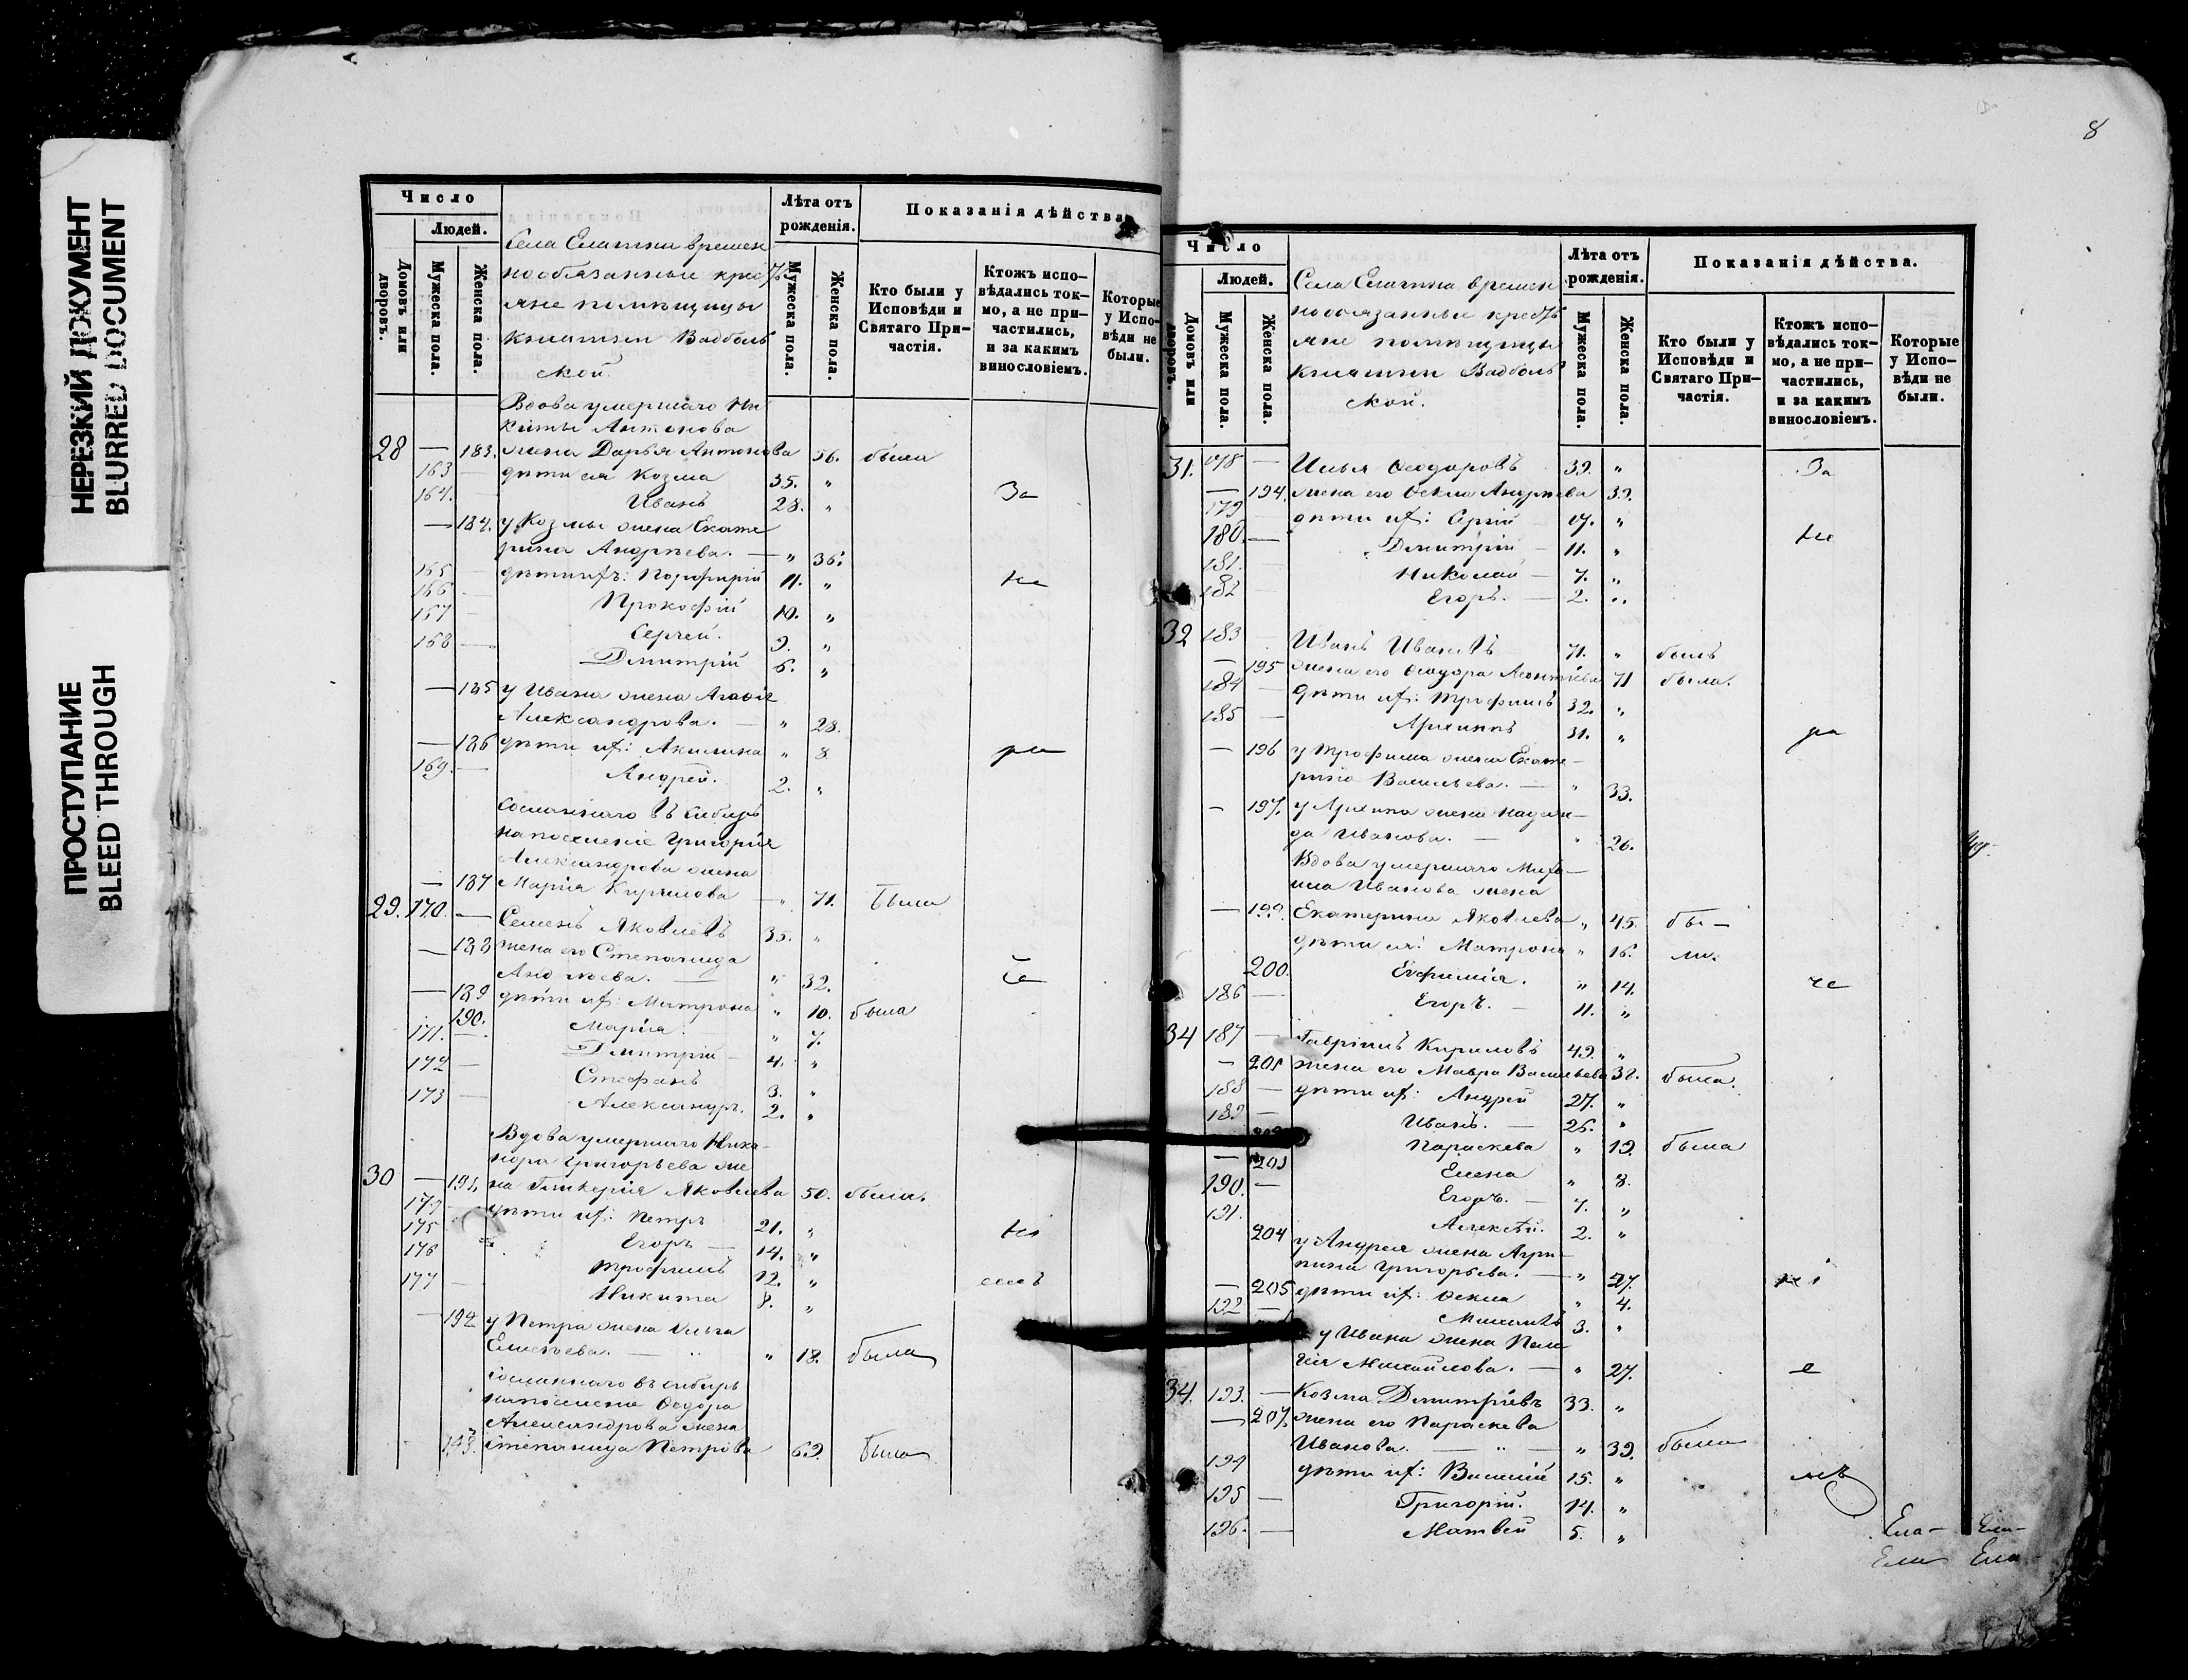 НЕРЕЗКИЙ ДОКУМЕНТ
BLURRED DOCUMENT
ПРОСТУПАНИЕ
BLEED THROUGH
Число
Людей.
Домовъ или дворовъ.
Мужеска пола.
Женска пола.
Села Елатки времен
нообязанные крес
яне помѣщицы
княгини Вадболь
ской.
Лѣта отъ рожденія.
Мужеска пола.
Женска пола.
Показанія дѣйства
Кто были у Исповѣди и Святаго Причастія.
Ктожъ исповѣдались токмо, а не причастились, и за какимъ винословіемъ.
Которые у Исповѣди не были.
Вдова умершаго Ни
киты Антонова
28 — 183. жена Дарья Антонова 56. была
163 — дѣти ея Козма 35. "
164. Иванъ 28. " За
— 184. у Козмы жена Екате
рина Андреева. — " 36.
165 дѣти ихъ: Порфирій 11. " не
166 — Прокофій 10. "
167 — Сергей. 9. "
168 — Дмитрій 6. "
— 185 у Ивана жена Агафія
Александрова. — " 28.
— 186 дѣти их: Акилина " 8 ра
169. — Андрей. 2. "
Сосланнаго въ Сибирь
на поселеніе Григорія
Александрова жена
— 187 Марія Кирилова — " 71. Была
29. 170. — Семенъ Яковлевъ 35. "
— 188 жена его Степанида
Андреева. — " 32. че
— 189 дѣти их: Матрона " 10. была
190. Марія. " 7.
171. — Дмитрій — 4. "
172 — Стефанъ 3. "
173 — Александръ. 2. "
Вдова умершаго Ника-
нора Григорьева же
30 — 191, на Гликерія Яковлева 50. была.
дѣти их: Петръ 21. "
175 Егоръ — 14. " ні
176 Трофимъ 12. "
177 — Никита 8. "
— 192 у Петра жена Ольга
Елисѣева. — " 18. была
Сосланнаго въ Сибирь
на поселеніе Ѳедора
Александрова жена
193. Степанида Петрова 69. Была
8
Число
Людей.
Домовъ или дворовъ.
Мужеска пола.
Женска пола.
Села Елатка времен
нообязанные крес
яне помѣщицы
княгини Вадболь
ской.
Лѣта отъ рожденія.
Мужеска пола.
Женска пола.
Показанія дѣйства.
Кто были у Исповѣди и Святаго Причастія.
Ктожъ исповѣдались токмо, а не причастились, и за какимъ винословіемъ.
Которые у Исповѣди не были.
31. 178 — Илья Ѳеодоровъ 39. " За
— 194. жена его Ѳекла Андреева 39.
179 дѣти их: Сергій "
180. — Дмитрій — 11. " не
181. Николай — 7. "
182 Егоръ. — 2. "
32 183 Иванъ Ивановъ 71. " былъ
— 195 жена его Ѳеодора Леонтіева 71 была.
184 — дѣти их: Трофимъ 32. "
185 — Архипъ 31. " ра
— 196 у Трофима жена Екате-
рина Васильева. — " 33.
— 197. у Архипа жена Надеж-
да Иванова. — " 26.
Вдова умершаго Миха-
ила Иванова жена
— 199. Екатерина Яковлева " 45. бы-
дѣти ея: Матрона " 16. ли.
200. Евфимія. " 14. че
186 — Егоръ. — 11. "
34 187 — Гавріилъ Кириловъ 49. "
— 201 жена его Мавра Васильева была.
188 — дѣти их: Андрей 27. "
189 — Иванъ. — 26. "
Параскева " 19. была
— Елена " 8.
190. — Егоръ. — 7. "
191. Алексѣй. 2. "
204 у Андрея жена Агри-
пина Григорьева. — " 27. ні
— 205 дѣти их: Ѳекла " 4.
192 — 3. "
у Ивана жена Пела
гія Михайлова. — " 27. е
34. 193. — Козма Дмитріевъ 33. "
— 207. жена его Параскева
Иванова. — " — " 39. была
194 дѣти их: Василій 15. " мъ
195 — Григорій. 14. "
196. — Матвей 5. "
Ела- Ела-
Ела Ела-